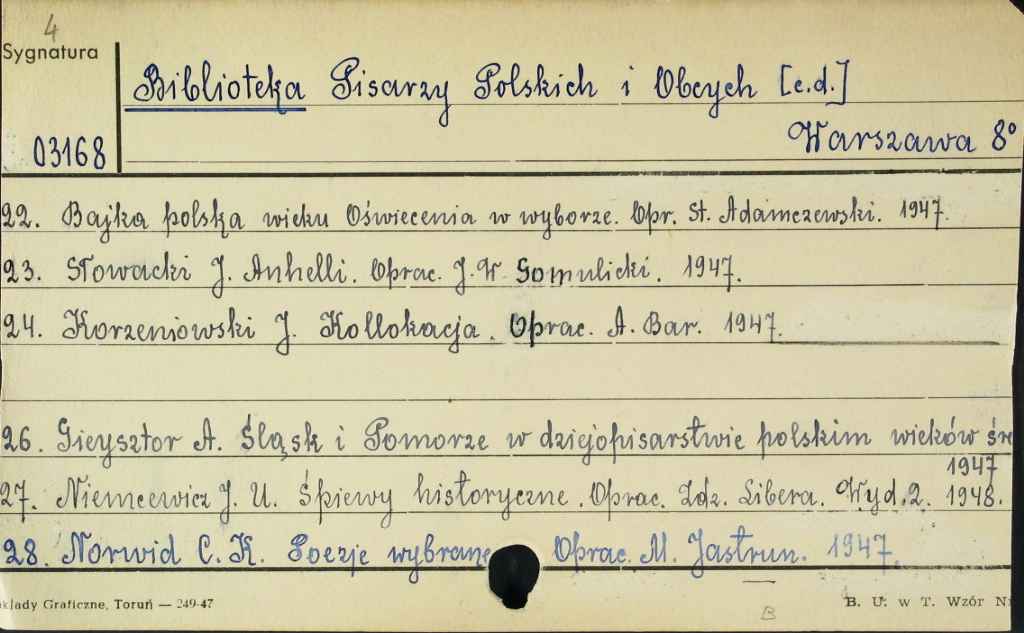 4
Sygnatura
Biblioteka Pisarzy Polskich i Obcych [c.d.]
03168
Warszawa 8°
22. Bajka polska wieku Oświecenia w wyborze. Opr. St. Adamczewski. 1947.
23. Słowacki J. Anhelli. Oprac. J.W. Gomulicki. 1947.
24. Korzeniowski J. Kollokacja. Oprac. A. Bar. 1947.
26. Gieysztor A. Śląsk i Pomorze w dziejopisarstwie polskim wieków śre
1947
27. Niemcewicz J. U. Śpiewy historyczne. Oprac. Zdz. Libera. Wyd. 2. 1948.
28. Norwid C. K. Poezje wybrane Oprac. M. Jastrun. 1947.
kłady Graficzne, Toruń — 249-47
B. U. w T. Wzór N
B